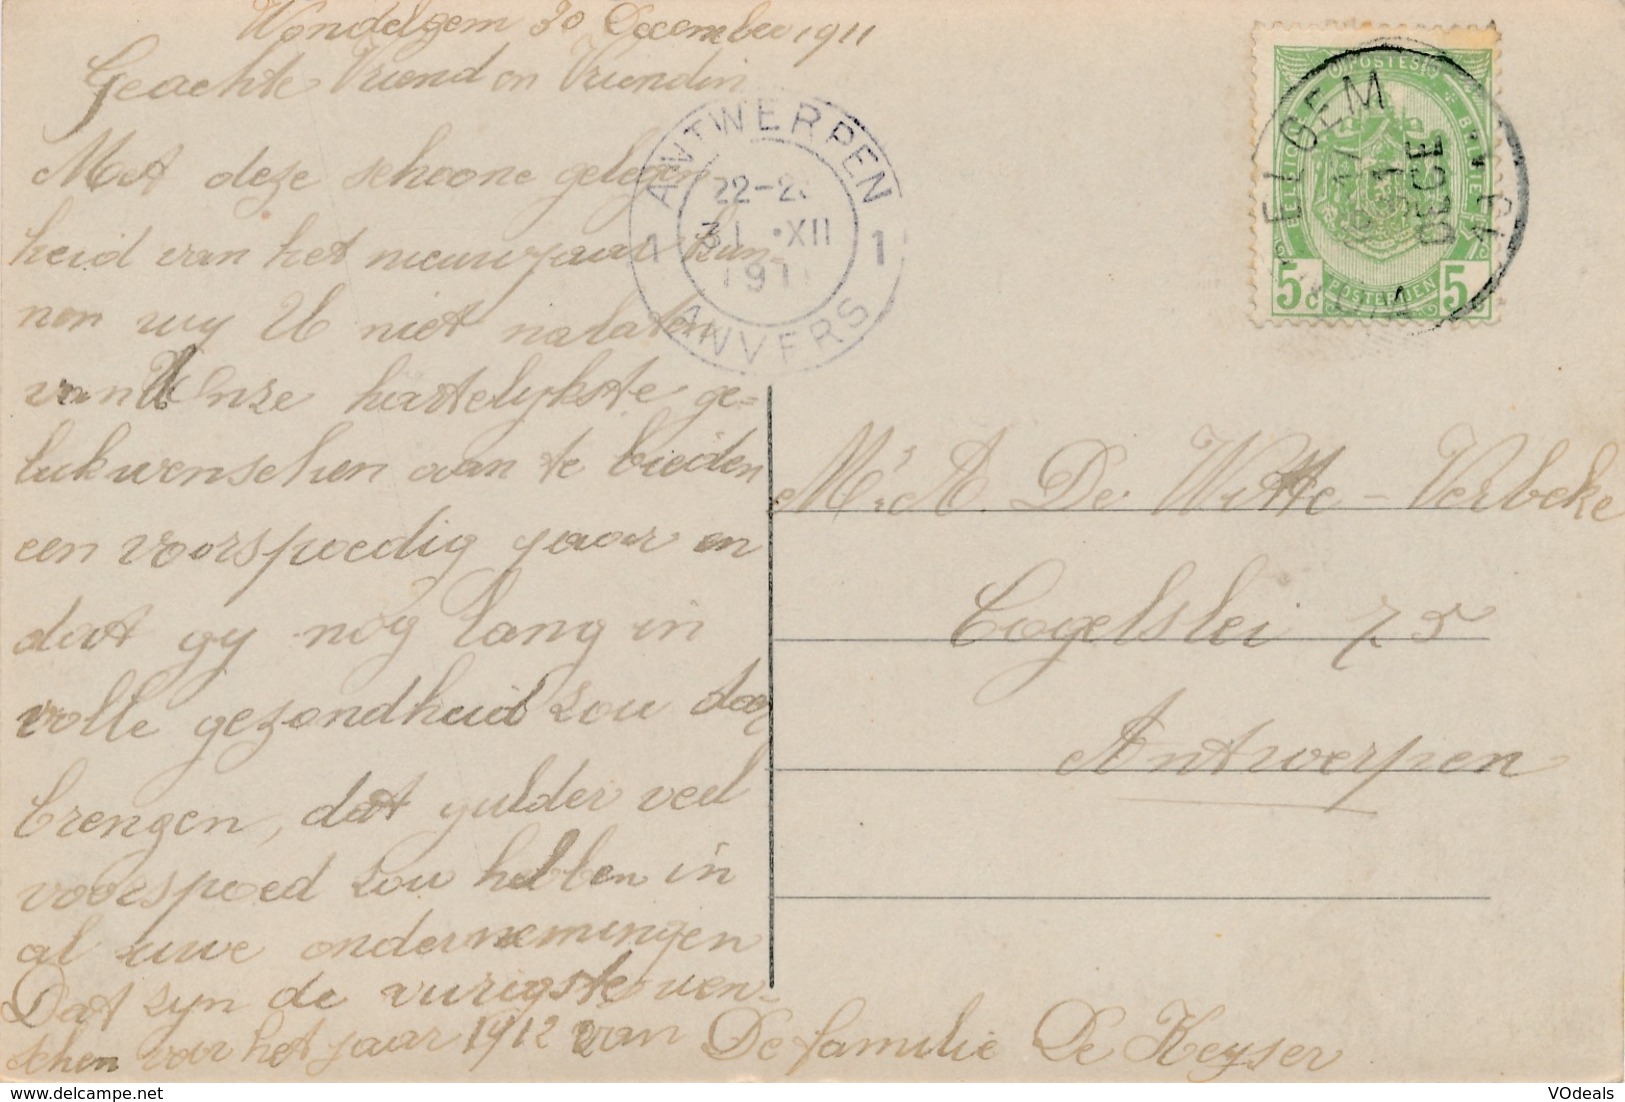 Wondelgem 30 December 1911
Geachte Vriend en Vriendin
Met deze schoone gelegen
heid van het nieuwjaar kun-
nen wy U niet nalaten
van Onze hartelykste ge=
lukwenschen aan te bieden
een voorspoedig jaar en
dat gy nog lang in
volle gezondheid zou door
brengen, dat gulder veel
voorspoed zou hebben in
al uwe ondernemingen
Dat zyn de vurigste wen-
schen voor het jaar 1912 van De familie De Keyser
ANTWERPEN
22-2
31 . XII
1911
1 1
ANVERS
POSTES
BELGIQUE BELGIE
5c POSTERIJEN 5c
ELGEM
31
DECE
1911
Mr A. De Witte-Verbeke
Cogelslei 75
Antwerpen
https://www.delcampe.net
VOdeals